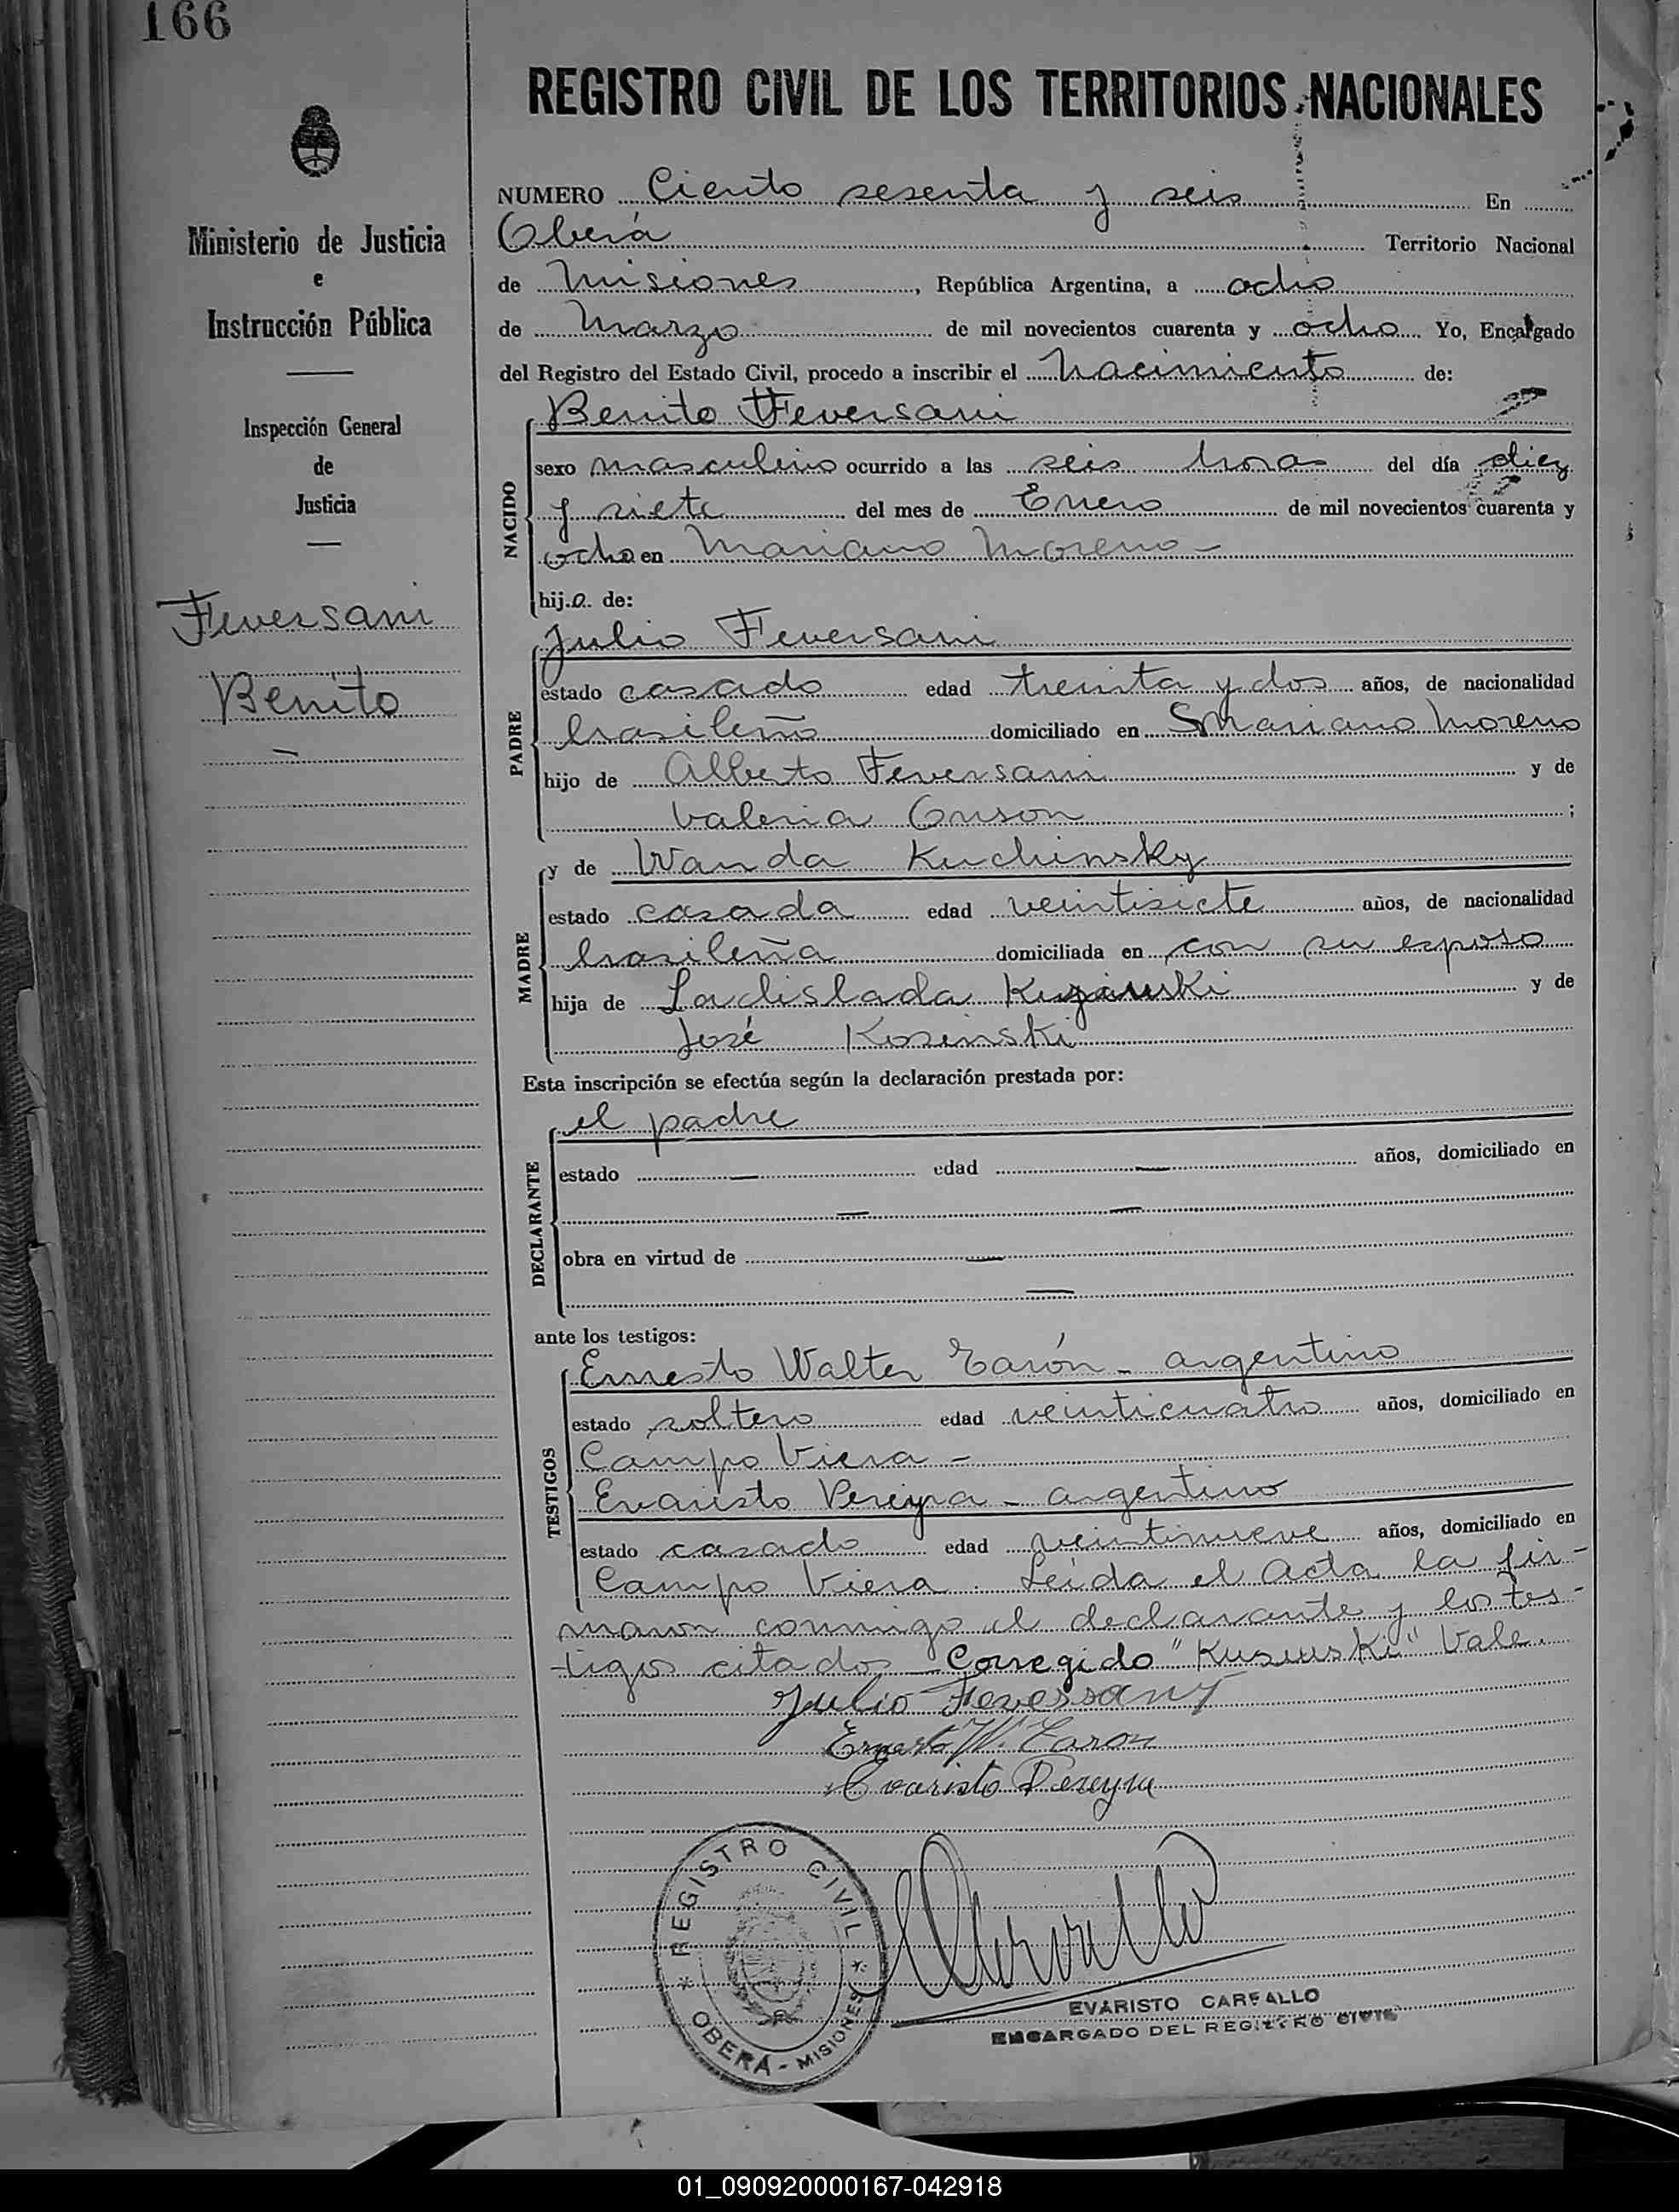 166
REGISTRO CIVIL DE LOS TERRITORIOS NACIONALES
Ministerio de Justicia
e
Instrucción Pública
Inspección General
de
Justicia
Feversani
Benito
NUMERO Ciento sesenta y seis En
Oberá Territorio Nacional
de Misiones, República Argentina, a ocho
de Marzo de mil novecientos cuarenta y ocho Yo, Encargado
del Registro del Estado Civil, procedo a inscribir el nacimiento de:
Benito Feversani
NACIDO
sexo masculino ocurrido a las seis horas del día diez
y siete del mes de Enero de mil novecientos cuarenta y
ocho en Mariano Moreno -
hijo de:
Julio Feversani
PADRE
estado casado edad treinta y dos años, de nacionalidad
brasileño domiciliado en Mariano Moreno
hijo de Alberto Feversani y de
Valeria Orison;
y de Wanda Kuchinsky
MADRE
estado casada edad veintisiete años, de nacionalidad
brasileña domiciliada en con su esposo
hija de Ladislada y de
José Kosinski
Esta inscripción se efectúa según la declaración prestada por:
el padre
DECLARANTE
estado — edad — años, domiciliado en
— —
obra en virtud de —
—
ante los testigos:
Ernesto Walter Carón - argentino
TESTIGOS
estado soltero edad veinticuatro años, domiciliado en
Campo Viera -
Evaristo Pereyra - argentino
estado casado edad veintinueve años, domiciliado en
Campo Viera. Leída el Acta la fir-
maron conmigo el declarante y los tes-
tigos citados - Corregido "Kusinski" Vale.
Julio Feversany
Ernesto W. Caron
Evaristo Pereyra
REGISTRO CIVIL
* OBERÁ - MISIONES *
EVARISTO CARFALLO
ENCARGADO DEL REGISTRO CIVIL
01_090920000167-042918